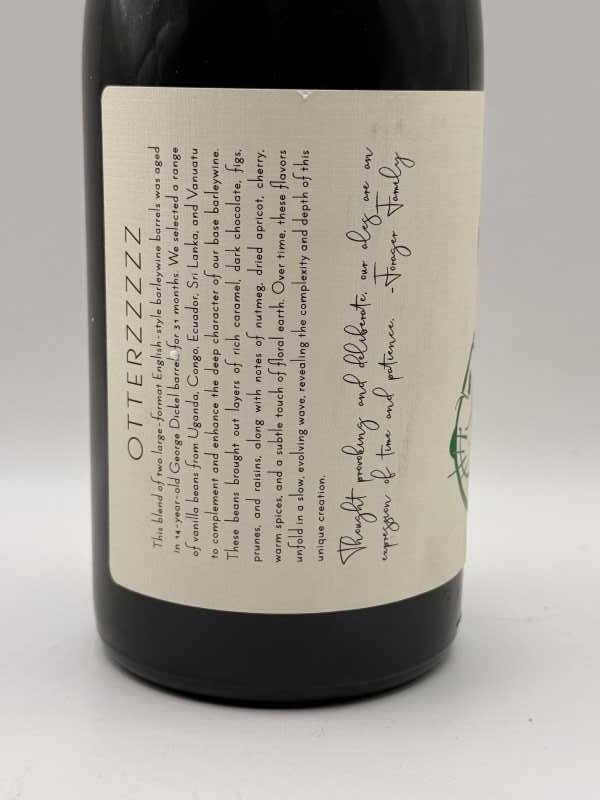 OTTERZZZZZ
This blend of two large-format English-style barleywine barrels was aged
in 14-year-old George Dickel barrels for 31 months. We selected a range
of vanilla beans from Uganda, Congo, Ecuador, Sri Lanka, and Vanuatu
to complement and enhance the deep character of our base barleywine.
These beans brought out layers of rich caramel, dark chocolate, figs,
prunes, and raisins, along with notes of nutmeg, dried apricot, cherry,
warm spices, and a subtle touch of floral earth. Over time, these flavors
unfold in a slow, evolving wave, revealing the complexity and depth of this
unique creation.
Thought provoking and deliberate, our ales are an
expression of time and patience. -Forager Family